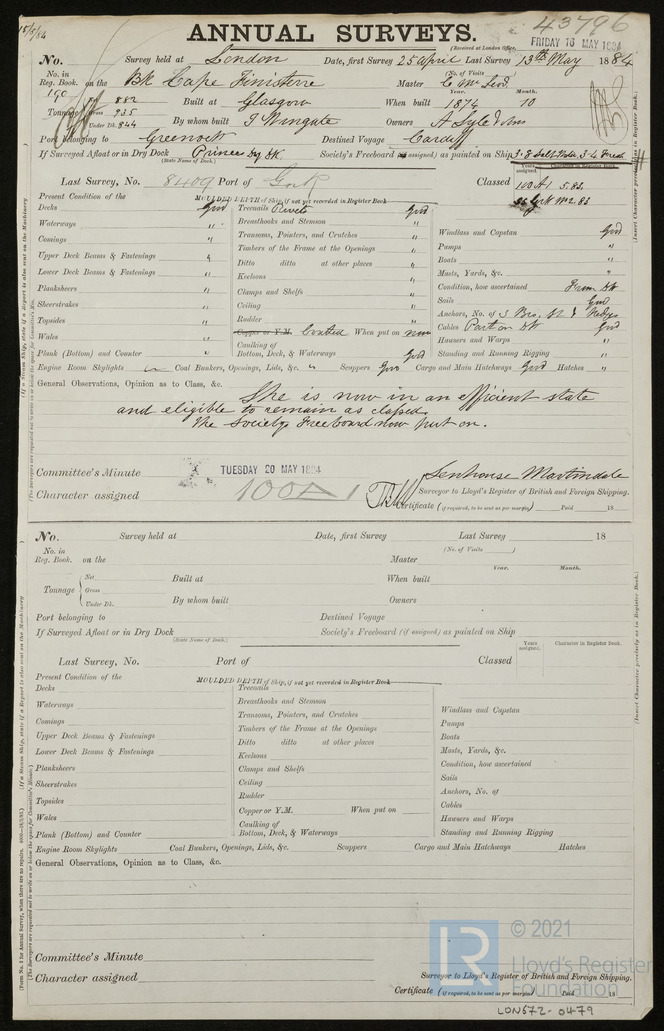 15/5/84
43796
ANNUAL SURVEYS.
(Received at London Office, FRIDAY 16 MAY 1884
No. Survey held at London Date, first Survey 25 April Last Survey 13th May 1884
No. in Reg. Book. 190 on the Bk Cape Finisterre Master C Mc (No. of Visits )
Tonnage Net 882 Gross 935 Under Dk. 844 Built at Glasgow When built 1874 Year. Month. 10
By whom built T Wingate Owners A Lyle & Sons
Port belonging to Greenock Destined Voyage Cardiff
If Surveyed Afloat or in Dry Dock Princes Dry Dk (State Name of Dock.) Society's Freeboard (if assigned) as painted on Ship 3.8 Salt Water, 3-4 Fresh
Years assigned. Character in Register Book.
Last Survey, No. 8409 Port of Cork Classed 100A1 5.83
Present Condition of the MOULDED DEPTH of Ship, if not yet recorded in Register Book
Decks Good Treenails Rivets Good
Waterways " Breasthooks and Stemson "
Comings " Transoms, Pointers, and Crutches " Windlass and Capstan Good
Upper Deck Beams & Fastenings " Timbers of the Frame at the Openings " Pumps "
Lower Deck Beams & Fastenings " Ditto ditto at other places " Boats "
Keelsons " Masts, Yards, &c. "
Planksheers " Clamps and Shelfs " Condition, how ascertained From Dk
Sheerstrakes " Ceiling " Sails Good
Topsides " Rudder " Anchors, No. of 3 Bro, St & Kedges
Wales " Copper or Y.M. Coated When put on now Cables Part on Dk Good
Plank (Bottom) and Counter " Caulking of Bottom, Deck, & Waterways Good Hawsers and Warps "
Standing and Running Rigging "
Engine Room Skylights Coal Bunkers, Openings, Lids, &c. " Scuppers Good Cargo and Main Hatchways Good Hatches "
General Observations, Opinion as to Class, &c. She is now in an efficient state
and eligible to remain as classed.
The Society's Freeboard now put on.
Committee's Minute TUESDAY 20 MAY 1884 Senhouse Martindale
Character assigned 100A1 Surveyor to Lloyd's Register of British and Foreign Shipping.
Certificate (if required, to be sent as per margin) Paid 18
No. Survey held at Date, first Survey Last Survey 18
No. in Reg. Book. on the Master (No. of Visits )
Tonnage Net Gross Under Dk. Built at When built Year. Month.
By whom built Owners
Port belonging to Destined Voyage
If Surveyed Afloat or in Dry Dock (State Name of Dock.) Society's Freeboard (if assigned) as painted on Ship
Years assigned. Character in Register Book.
Last Survey, No. Port of Classed
Present Condition of the MOULDED DEPTH of Ship, if not yet recorded in Register Book
Decks Treenails
Waterways Breasthooks and Stemson
Comings Transoms, Pointers, and Crutches Windlass and Capstan
Upper Deck Beams & Fastenings Timbers of the Frame at the Openings Pumps
Lower Deck Beams & Fastenings Ditto ditto at other places Boats
Keelsons Masts, Yards, &c.
Planksheers Clamps and Shelfs Condition, how ascertained
Sheerstrakes Ceiling Sails
Topsides Rudder Anchors, No. of
Wales Copper or Y.M. When put on Cables
Plank (Bottom) and Counter Caulking of Bottom, Deck, & Waterways Hawsers and Warps
Standing and Running Rigging
Engine Room Skylights Coal Bunkers, Openings, Lids, &c. Scuppers Cargo and Main Hatchways Hatches
General Observations, Opinion as to Class, &c.
Committee's Minute
Character assigned Surveyor to Lloyd's Register of British and Foreign Shipping.
Certificate (if required, to be sent as per margin) Paid 18
(If a Steam Ship, state if a Report is also sent on the Machinery
(The Surveyors are requested not to write on or below the space for Committee's Minute.)
(Insert Character precisely as in Register Book.)
(Form No. 2 for Annual Survey, when there are no repairs.
LR © 2021
Lloyd's Register
Foundation
LON572-0479